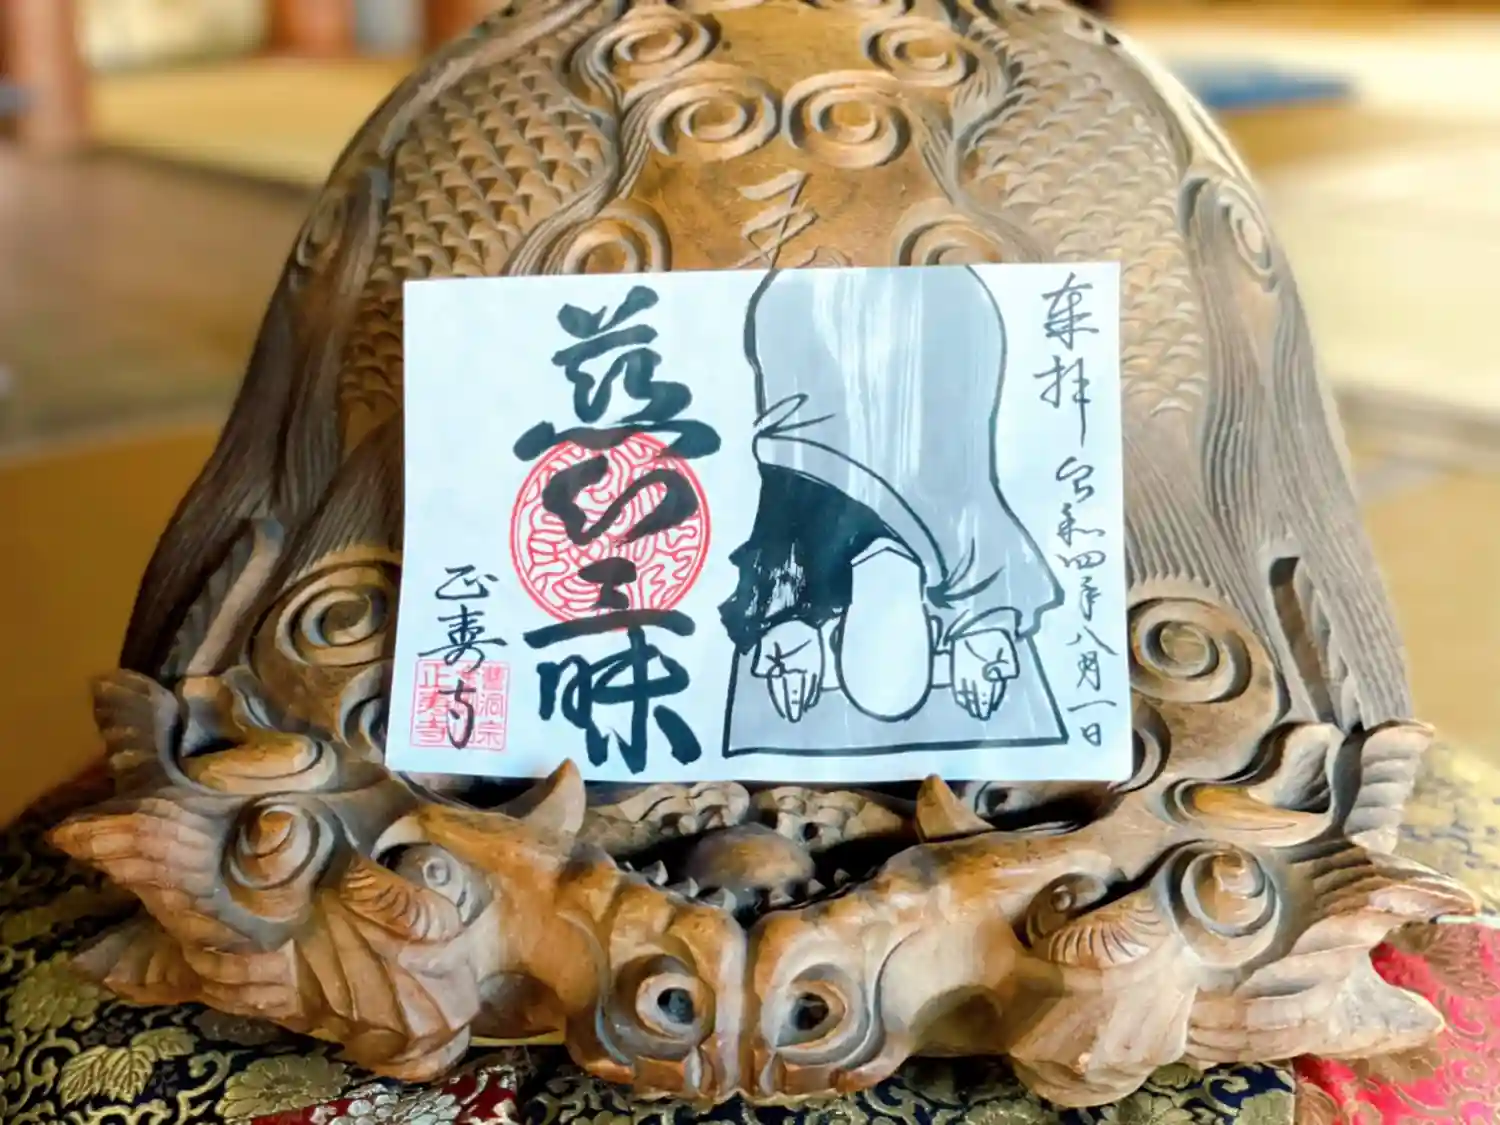 奉拝 令和四年八月一日
慈心三昧
正寿寺
曹洞宗
正寿寺